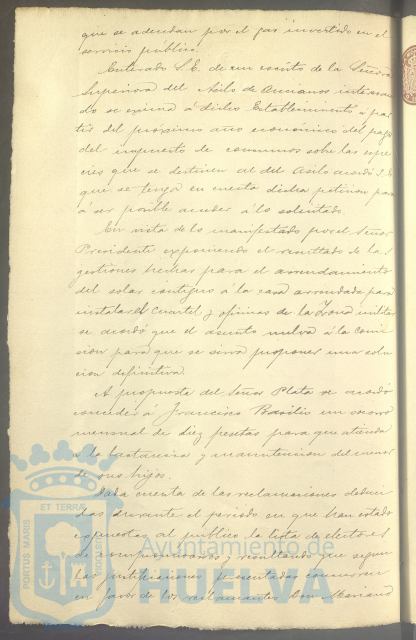 que se adeudan por el gas invertido en el
servicio público.
Enterado S. E. de un escrito de la Señora
Superiora del Asilo de Ancianos interesan
do se exima á dicho Establecimiento á par
tir del próximo año economico del pago
del impuesto de consumos sobre las espe
cies que se destinen al del Asilo acordó S. E.
que se tenga en cuenta dicha peticion para
á ser posible acceder á lo solicitado.
En vista de lo manifestado por el Señor
Presidente exponiendo el resultado de las
gestiones hechas para el arrendamiento
del solar contiguo á la casa arrendada para
instalar el Cuartel y oficinas de la Zona militar
se acordó que el asunto vuelva á la comi
sion para que se sirva proponer una solu
cion definitiva.
A propuesta del Señor Plata se acordó
conceder á Francisco Basilio un socorro
mensual de diez pesetas para que atienda
a la lactancia y manutencion del menor
de sus hijos.
Dada cuenta de las reclamaciones deduci
das durante el periodo en que han estado
expuestas al publico la lista de electores
de compromisarios y resultando que segun
las justificaciones presentadas concurren
en favor de los reclamantes Don Mariano
PORTUS MARIS ET TERRÆ CUSTODIA
Ayuntamiento de
HUELVA